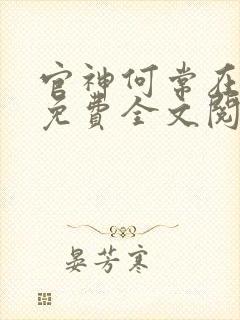 官神何常在
免費全文閱
晏芳寒